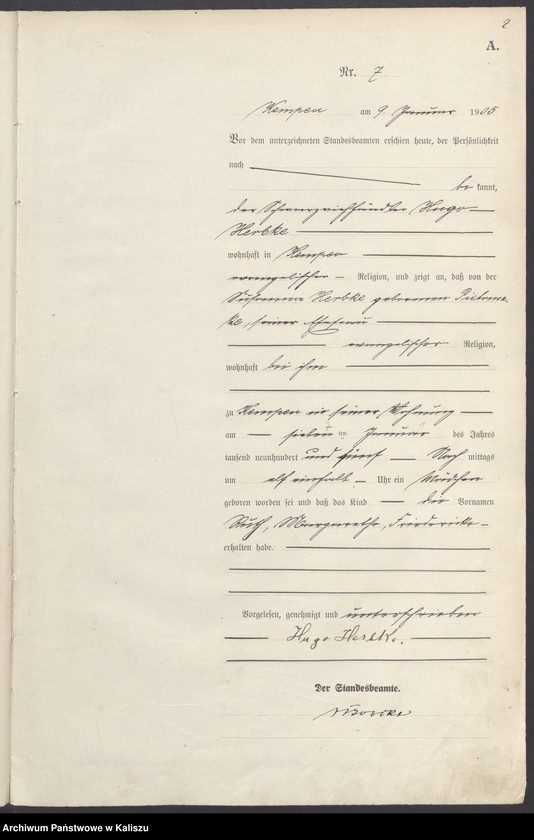 2
A.
Nr. 7
Kempen am 9. Januar 1905
Vor dem unterzeichneten Standesbeamten erschien heute, der Persönlichkeit
nach
be kannt,
der Schwarzviehhändler Hugo
Herbke
wohnhaft in Kempen
evangelischer Religion, und zeigt an, daß von der
Susanna Herbke geborenen
seiner Ehefrau
evangelischer Religion,
wohnhaft bei ihm
zu Kempen in seiner Wohnung
am sieben ten Januar des Jahres
tausend neunhundert und fünf Nach mittags
um elf einhalb Uhr ein Mädchen
geboren worden sei und daß das Kind die Vornamen
Ruth, Margarethe, Friederike
erhalten habe.
Vorgelesen, genehmigt und unterschrieben
Hugo Herbke.
Der Standesbeamte.
Archiwum Państwowe w Kaliszu